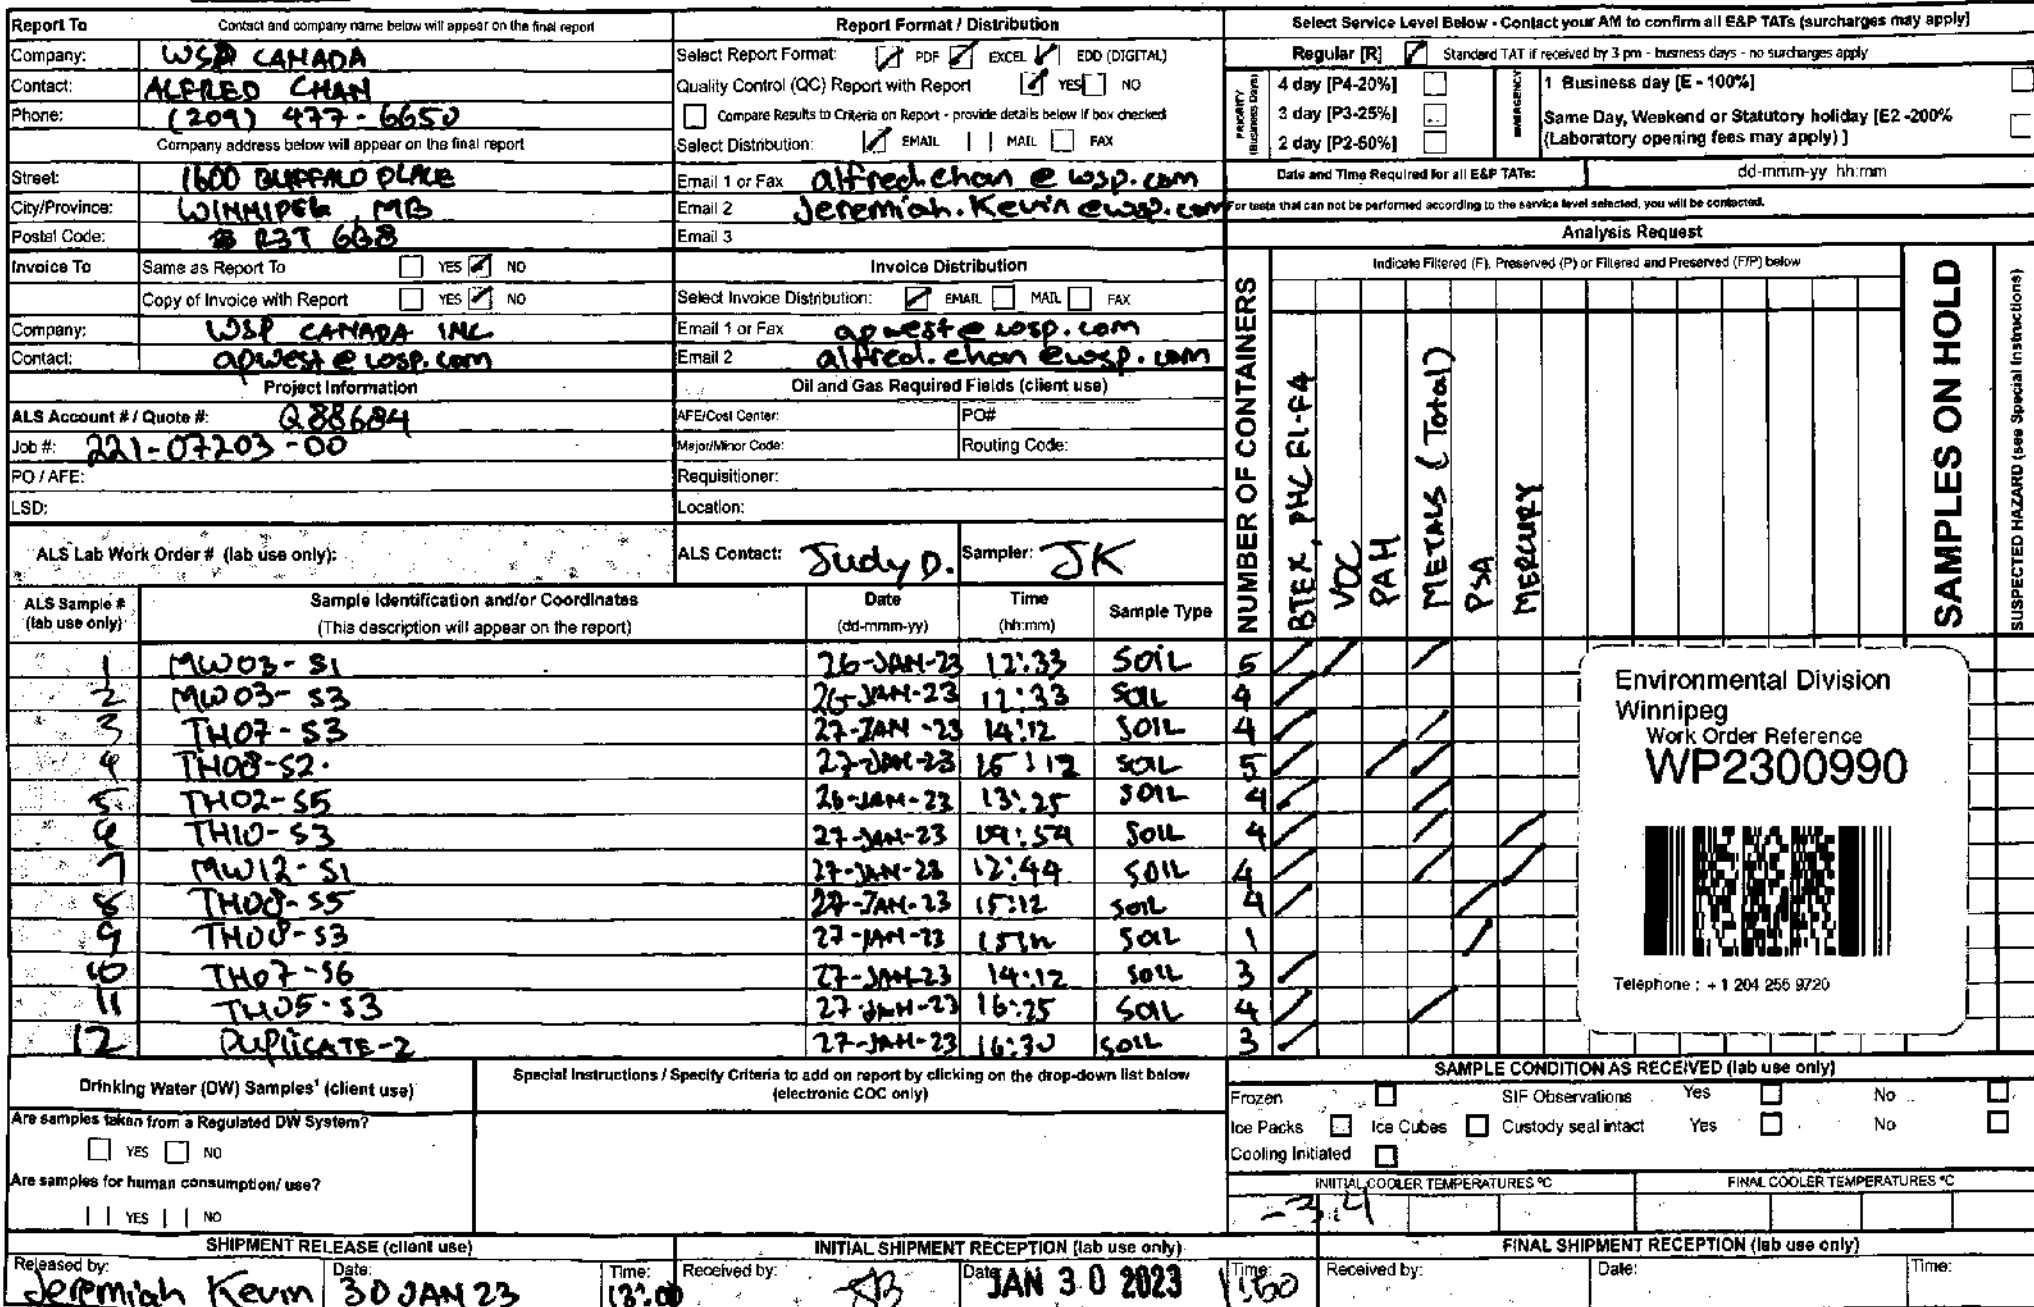 Report To Contact and company name below will appear on the final report
Company: WSP CANADA
Contact: ALFRED CHAN
Phone: (209) 477-6650
Company address below will appear on the final report
Street: 1600 BUFFALO PLACE
City/Province: WINNIPEG, MB
Postal Code: R3T 6G8
Invoice To Same as Report To YES NO
Copy of Invoice with Report YES NO
Company: WSP CANADA INC
Contact: apwest@wsp.com
Project Information
ALS Account # / Quote #: Q88684
Job #: 221-07203-00
PO / AFE:
LSD:
ALS Lab Work Order # (lab use only):
Report Format / Distribution
Select Report Format: PDF EXCEL EDD (DIGITAL)
Quality Control (QC) Report with Report YES NO
Compare Results to Criteria on Report - provide details below if box checked
Select Distribution: EMAIL MAIL FAX
Email 1 or Fax alfred.chan@wsp.com
Email 2 Jeremiah.Kevin@wsp.com
Email 3
Invoice Distribution
Select Invoice Distribution: EMAIL MAIL FAX
Email 1 or Fax apwest@wsp.com
Email 2 alfred.chan@wsp.com
Oil and Gas Required Fields (client use)
AFE/Cost Center: PO#
Major/Minor Code: Routing Code:
Requisitioner:
Location:
ALS Contact: Judy D. Sampler: JK
Select Service Level Below - Contact your AM to confirm all E&P TATs (surcharges may apply)
Regular [R] Standard TAT if received by 3 pm - business days - no surcharges apply
PRIORITY (Business Days)
4 day [P4-20%]
3 day [P3-25%]
2 day [P2-50%]
EMERGENCY
1 Business day [E - 100%]
Same Day, Weekend or Statutory holiday [E2 -200%
(Laboratory opening fees may apply) ]
Date and Time Required for all E&P TATs: dd-mmm-yy hh:mm
For tests that can not be performed according to the service level selected, you will be contacted.
Analysis Request
Indicate Filtered (F), Preserved (P) or Filtered and Preserved (F/P) below
NUMBER OF CONTAINERS
BTEX, PHC F1-F4
VOC
PAH
METALS (Total)
PSA
MERCURY
SAMPLES ON HOLD
SUSPECTED HAZARD (see Special Instructions)
ALS Sample # (lab use only) Sample Identification and/or Coordinates (This description will appear on the report) Date (dd-mmm-yy) Time (hh:mm) Sample Type
1 MW03-S1 26-JAN-23 12:33 SOIL 5
2 MW03-S3 26-JAN-23 12:33 SOIL 4
3 TH07-S3 27-JAN-23 14:12 SOIL 4
4 TH08-S2 27-JAN-23 15:12 SOIL 5
5 TH02-S5 26-JAN-23 13:25 SOIL 4
6 TH10-S3 27-JAN-23 09:54 SOIL 4
7 MW12-S1 27-JAN-23 12:44 SOIL 4
8 TH08-S5 27-JAN-23 15:12 SOIL 4
9 TH08-S3 27-JAN-23 15:12 SOIL 1
10 TH07-S6 27-JAN-23 14:12 SOIL 3
11 TH05-S3 27-JAN-23 16:25 SOIL 4
12 DUPLICATE-2 27-JAN-23 16:30 SOIL 3
Environmental Division
Winnipeg
Work Order Reference
WP2300990
Telephone : + 1 204 255 9720
Drinking Water (DW) Samples¹ (client use)
Are samples taken from a Regulated DW System?
YES NO
Are samples for human consumption/ use?
YES NO
Special Instructions / Specify Criteria to add on report by clicking on the drop-down list below
(electronic COC only)
SAMPLE CONDITION AS RECEIVED (lab use only)
Frozen SIF Observations Yes No
Ice Packs Ice Cubes Custody seal intact Yes No
Cooling Initiated
INIITIAL COOLER TEMPERATURES ºC FINAL COOLER TEMPERATURES ºC
-3.4
SHIPMENT RELEASE (client use) INITIAL SHIPMENT RECEPTION (lab use only) FINAL SHIPMENT RECEPTION (lab use only)
Released by: Jeremiah Kevin Date: 30 JAN 23 Time: 13:00 Received by: Date: JAN 30 2023 Time: Received by: Date: Time: